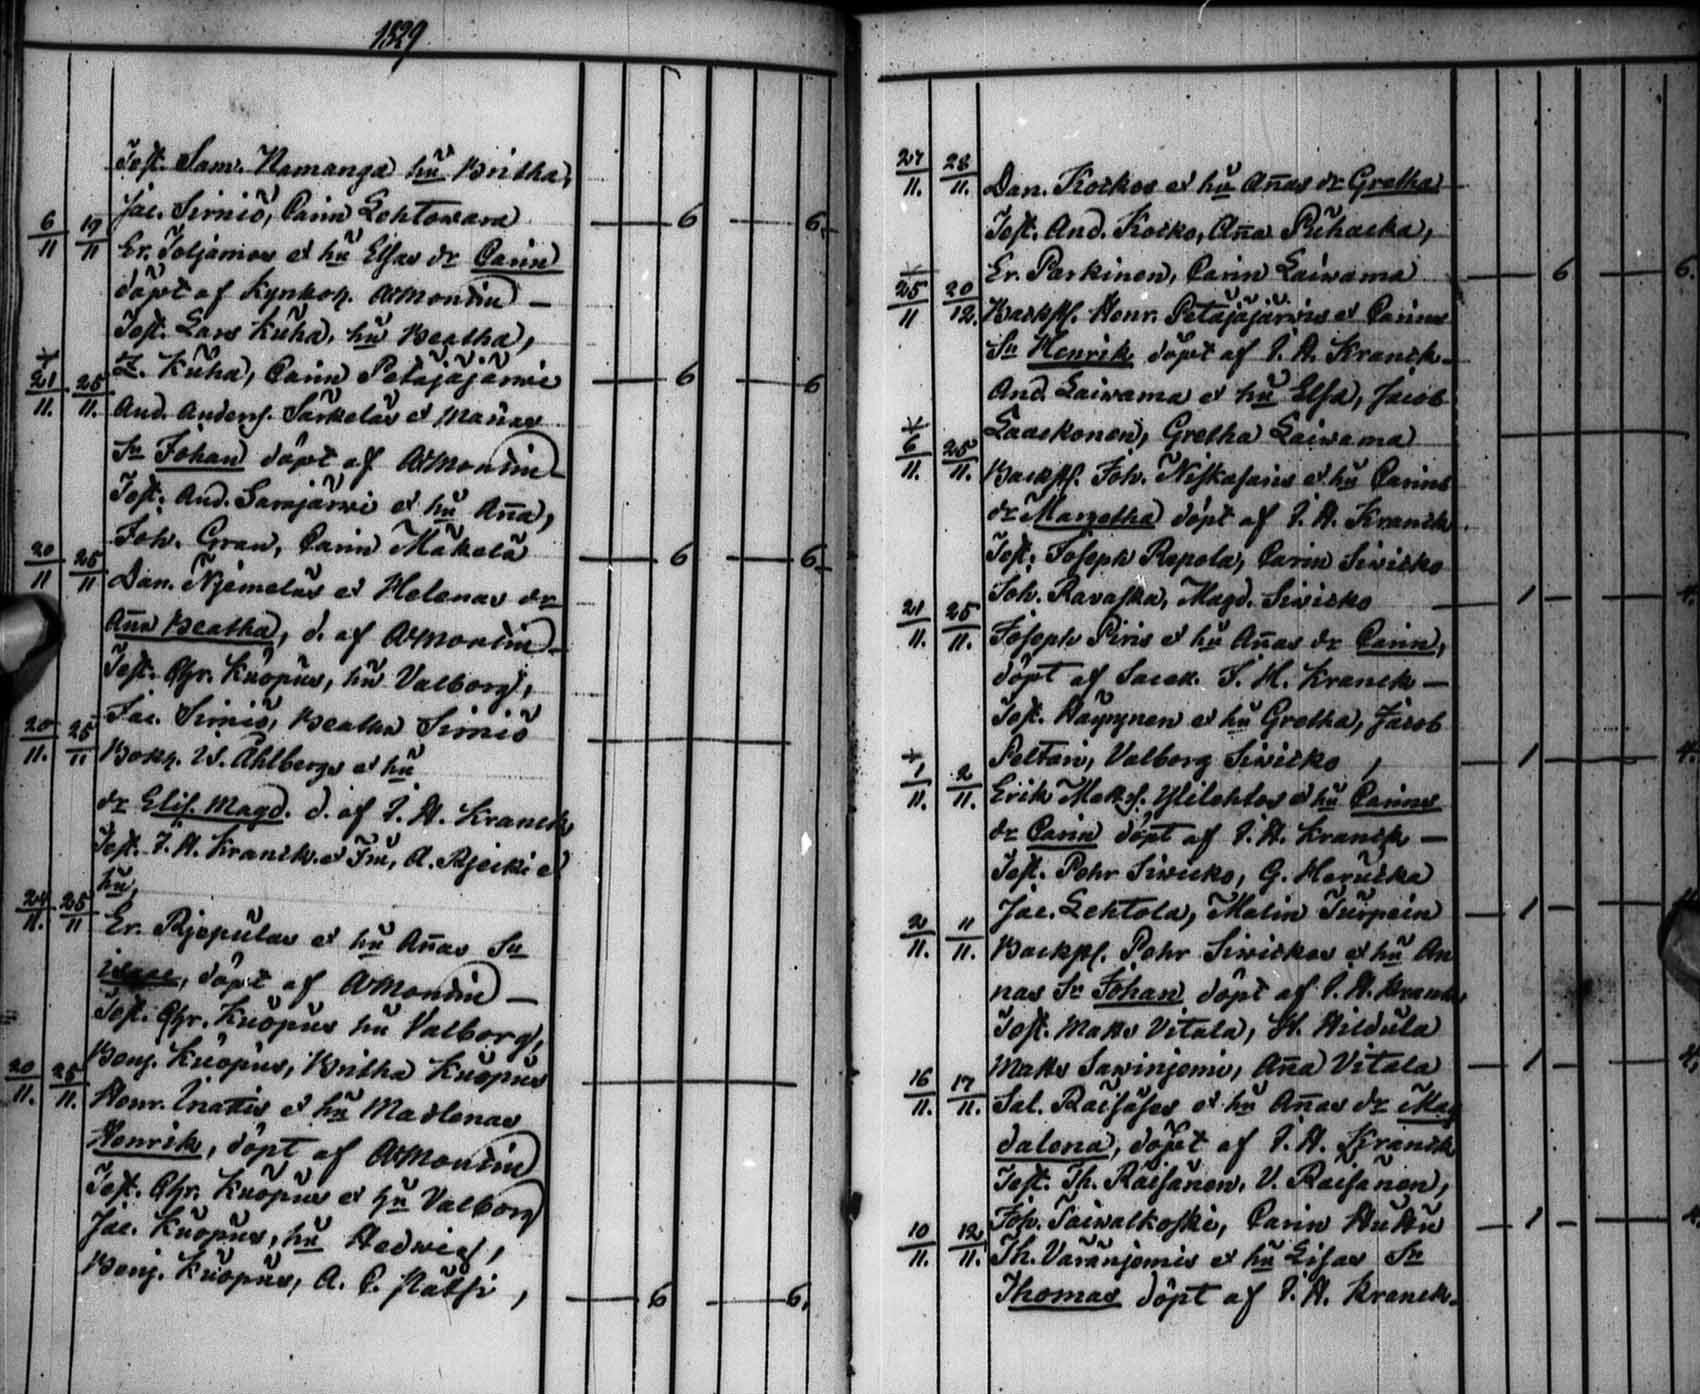 1829
Test. Sam. Namanga hu Britha,
Jac. Sirniö, Carin Lehtowara — 6 — 6.
6/11 19/11 Er. Toljamos et hu Elsas dr Carin
döpt af Kyrkoh. AMontin —
Test. Lars Kuha, hu Beatha,
Z. Kuha, Carin Petäjäjärwi — 6 — 6
+ 21/11. 25/11. And. Anders. Särkeläs et Mariæs
Sn Johan döpt af AMontin —
Test. And. Saarjärwi et hu Aña,
Joh. Gran, Carin Mäkelä — 6 — 6.
20/11 25/11 Dan. Njemeläs et Helenas dr
Aña Beatha, d. af AMontin —
Test. Chr. Kuopus, hu Valborg,
Jac. Sirniö, Beatha Sirniö
20/11. 25/11 Bokh. W. Åhlbergs et hu
dr Elis. Magd. d. af J. H. Kranck
Test. J. H. Kranck et Fru, A. Rjecki et
hu,
24/11. 25/11 Er. Rjepulas et hu Añas Sn
Isaac, döpt af AMontin —
Test. Chr. Kuopus hu Valborg,
Benj. Kuopus, Britha Kuopus
20/11. 25/11. Henr. Inattis et hu Madlenas
Henrik, döpt af AMontin
Test. Chr. Kuopus et hu Valborg
Jac. Kuopus, hu Hedwig,
Benj. Kuopus, A. C. Nätsi, — 6 — 6.
27/11. 28/11. Dan. Koikos et hu Añas dr Gretha
Test. And. Koiko, Aña Puhacka,
Er. Parkinen, Carin Laiwama — 6 — 6.
+ 25/11 20/12. Backst. Henr. Petäjäjärwis et Carins
Sn Henrik döpt af J. H. Kranck.
And. Laiwama et hu Elsa, Jacob
Laaskonen, Gretha Laiwama
+ 6/11. 25/11. Backst. Joh. Niskasaris et hu Carins
dr Margetha döpt af J. H. Kranck.
Test. Joseph Repola, Carin Siwicko
Joh. Ravaska, Magd. Siwicko — 1 — 4.
21/11. 25/11. Joseph Piris et hu Añas dr Carin,
döpt af Sacell. J. H. Kranck —
Test. Häyrynen et hu Gretha, Jacob
Peltari, Valborg Siwicko, — 1 — 4.
+ 1/11. 2/11. Erik Matts. Ylilehtos et hu Carins
dr Carin döpt af J. H. Kranck —
Test. Pehr Siwicko, G. Heruicka
Jac. Lehtola, Malin Turpein — 1 —
2/11. 11/11. Backst. Pehr Siwickos et hu An
nas Sn Johan döpt af J. H. Kranck
Test. Matts Vitala, H. Hildula
Matts Sawinjemi, Aña Vitala — 1 — 4,
16/11. 17/11. Sal. Räisäses et hu Añas dr Mag
dalena, döpt af J. H. Kranck
Test. Th. Räisänen, V. Räisänen,
Joh. Taiwalkoski, Carin Huttu — 1 — 4.
10/11. 12/11. Th. Väränjemis et hu Lisas Sn
Thomas döpt af J. H. Kranck.